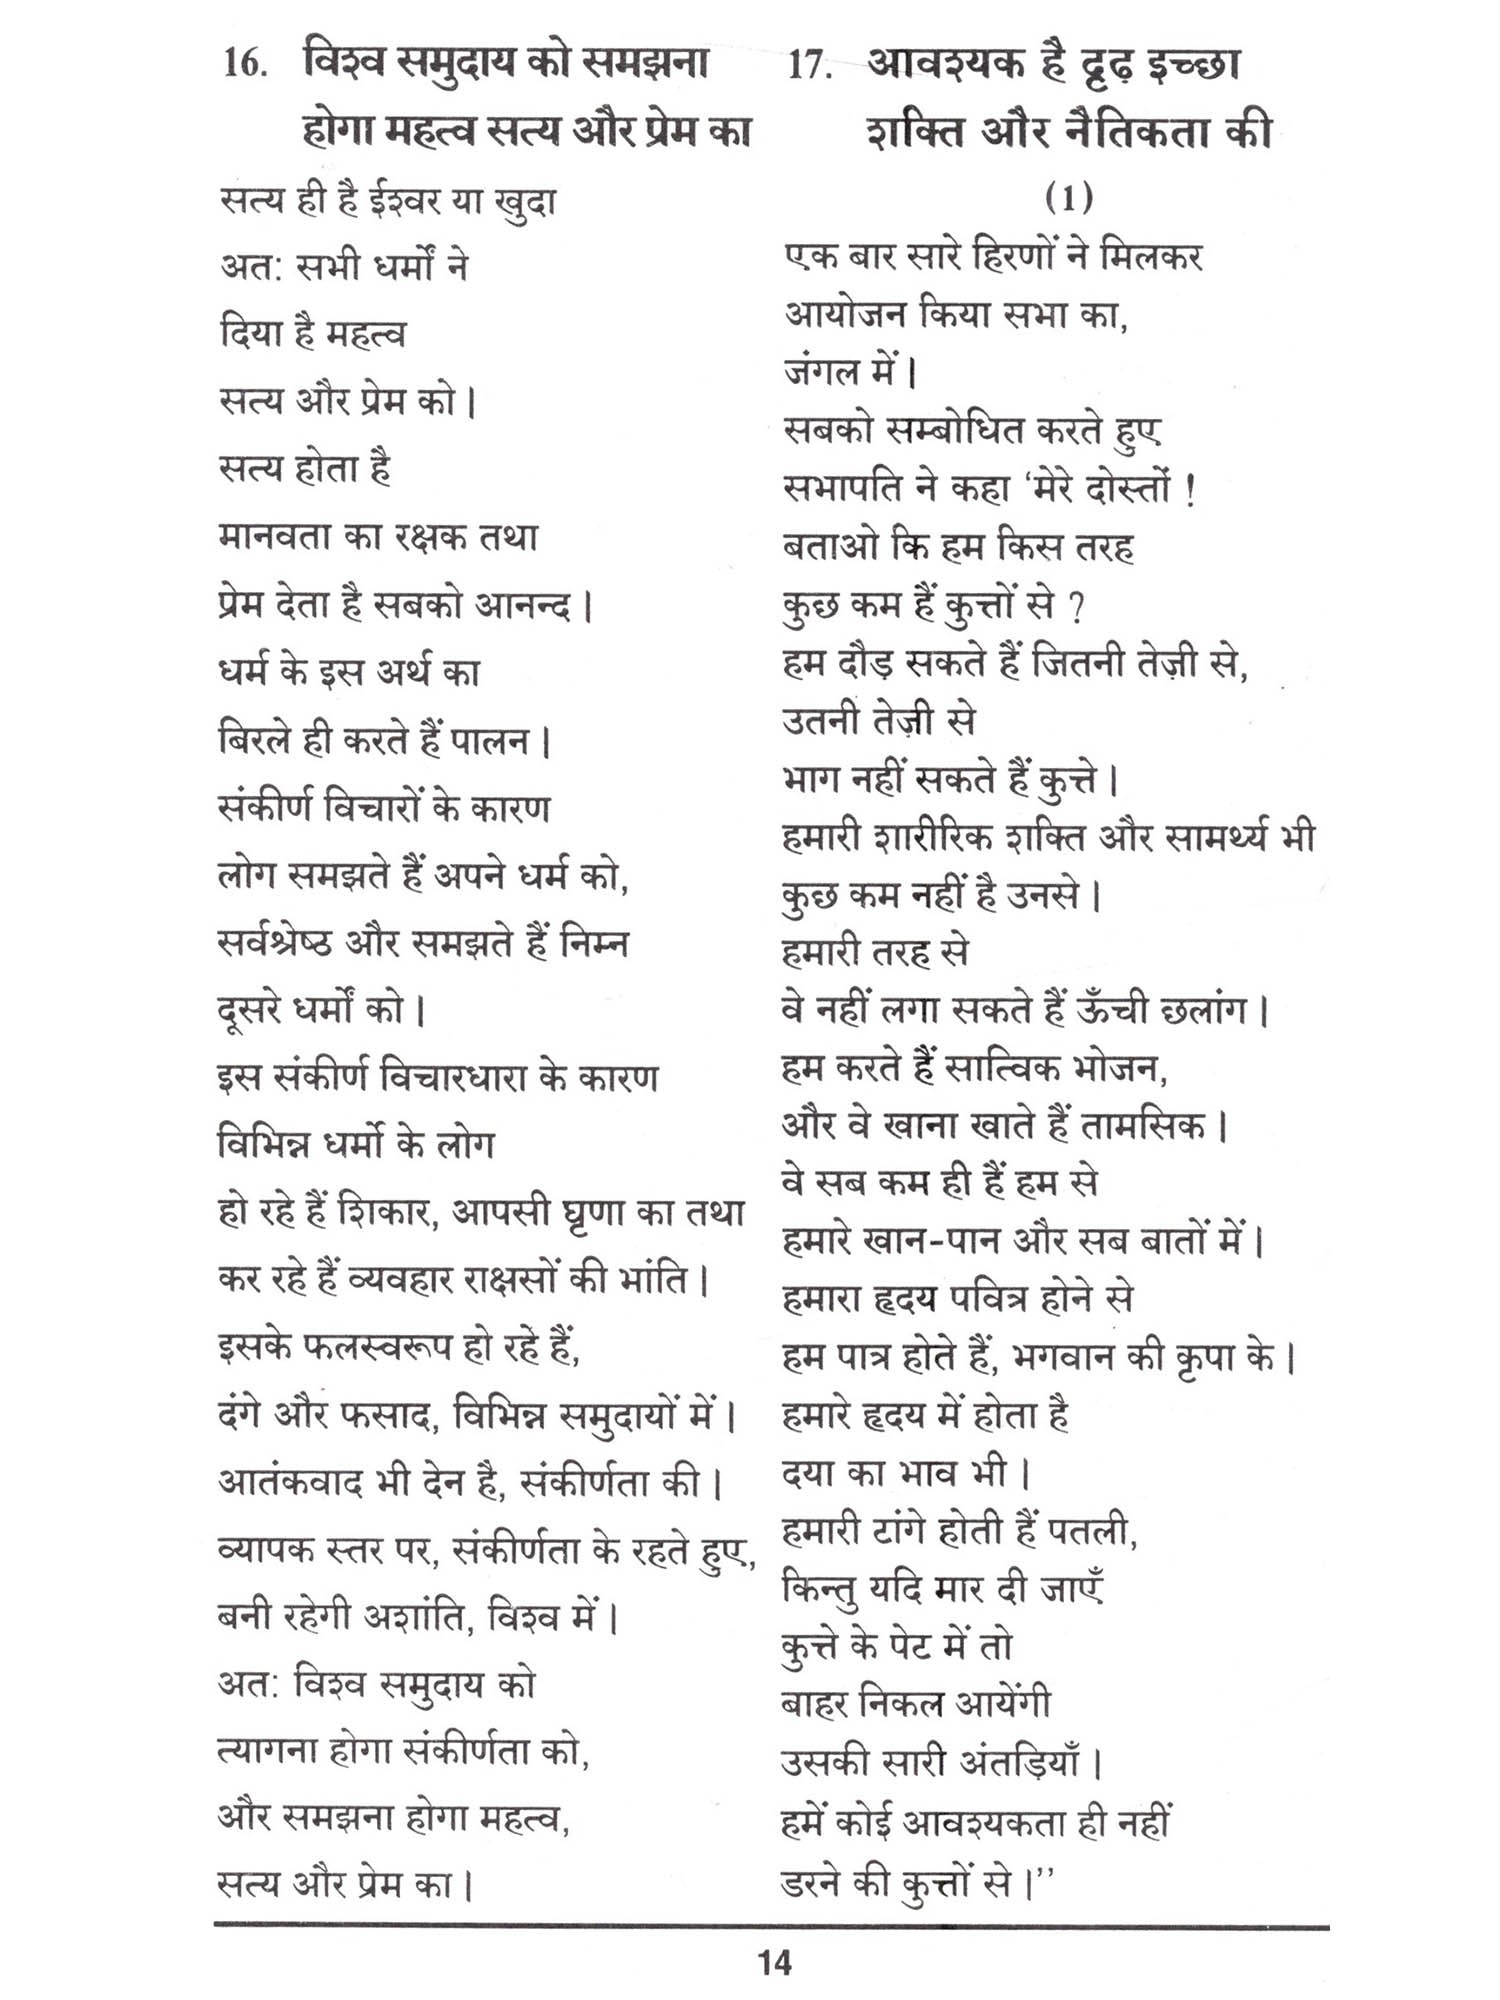 16. विश्व समुदाय को समझना
होगा महत्व सत्य और प्रेम का
सत्य ही है ईश्वर या खुदा
अतः सभी धर्मों ने
दिया है महत्व
सत्य और प्रेम को।
सत्य होता है
मानवता का रक्षक तथा
प्रेम देता है सबको आनन्द।
धर्म के इस अर्थ का
बिरले ही करते हैं पालन।
संकीर्ण विचारों के कारण
लोग समझते हैं अपने धर्म को,
सर्वश्रेष्ठ और समझते हैं निम्न
दूसरे धर्मों को।
इस संकीर्ण विचारधारा के कारण
विभिन्न धर्मो के लोग
हो रहे हैं शिकार, आपसी घृणा का तथा
कर रहे हैं व्यवहार राक्षसों की भांति।
इसके फलस्वरूप हो रहे हैं,
दंगे और फसाद, विभिन्न समुदायों में।
आतंकवाद भी देन है, संकीर्णता की।
व्यापक स्तर पर, संकीर्णता के रहते हुए,
बनी रहेगी अशांति, विश्व में।
अतः विश्व समुदाय को
त्यागना होगा संकीर्णता को,
और समझना होगा महत्व,
सत्य और प्रेम का।
17. आवश्यक है दृढ़ इच्छा
शक्ति और नैतिकता की
(1)
एक बार सारे हिरणों ने मिलकर
आयोजन किया सभा का,
जंगल में।
सबको सम्बोधित करते हुए
सभापति ने कहा ‘मेरे दोस्तों !
बताओ कि हम किस तरह
कुछ कम हैं कुत्तों से ?
हम दौड़ सकते हैं जितनी तेज़ी से,
उतनी तेज़ी से
भाग नहीं सकते हैं कुत्ते।
हमारी शारीरिक शक्ति और सामर्थ्य भी
कुछ कम नहीं है उनसे।
हमारी तरह से
वे नहीं लगा सकते हैं ऊँची छलांग।
हम करते हैं सात्विक भोजन,
और वे खाना खाते हैं तामसिक।
वे सब कम ही हैं हम से
हमारे खान-पान और सब बातों में।
हमारा हृदय पवित्र होने से
हम पात्र होते हैं, भगवान की कृपा के।
हमारे हृदय में होता है
दया का भाव भी।
हमारी टांगे होती हैं पतली,
किन्तु यदि मार दी जाएँ
कुत्ते के पेट में तो
बाहर निकल आयेंगी
उसकी सारी अंतड़ियाँ।
हमें कोई आवश्यकता ही नहीं
डरने की कुत्तों से।’’
14